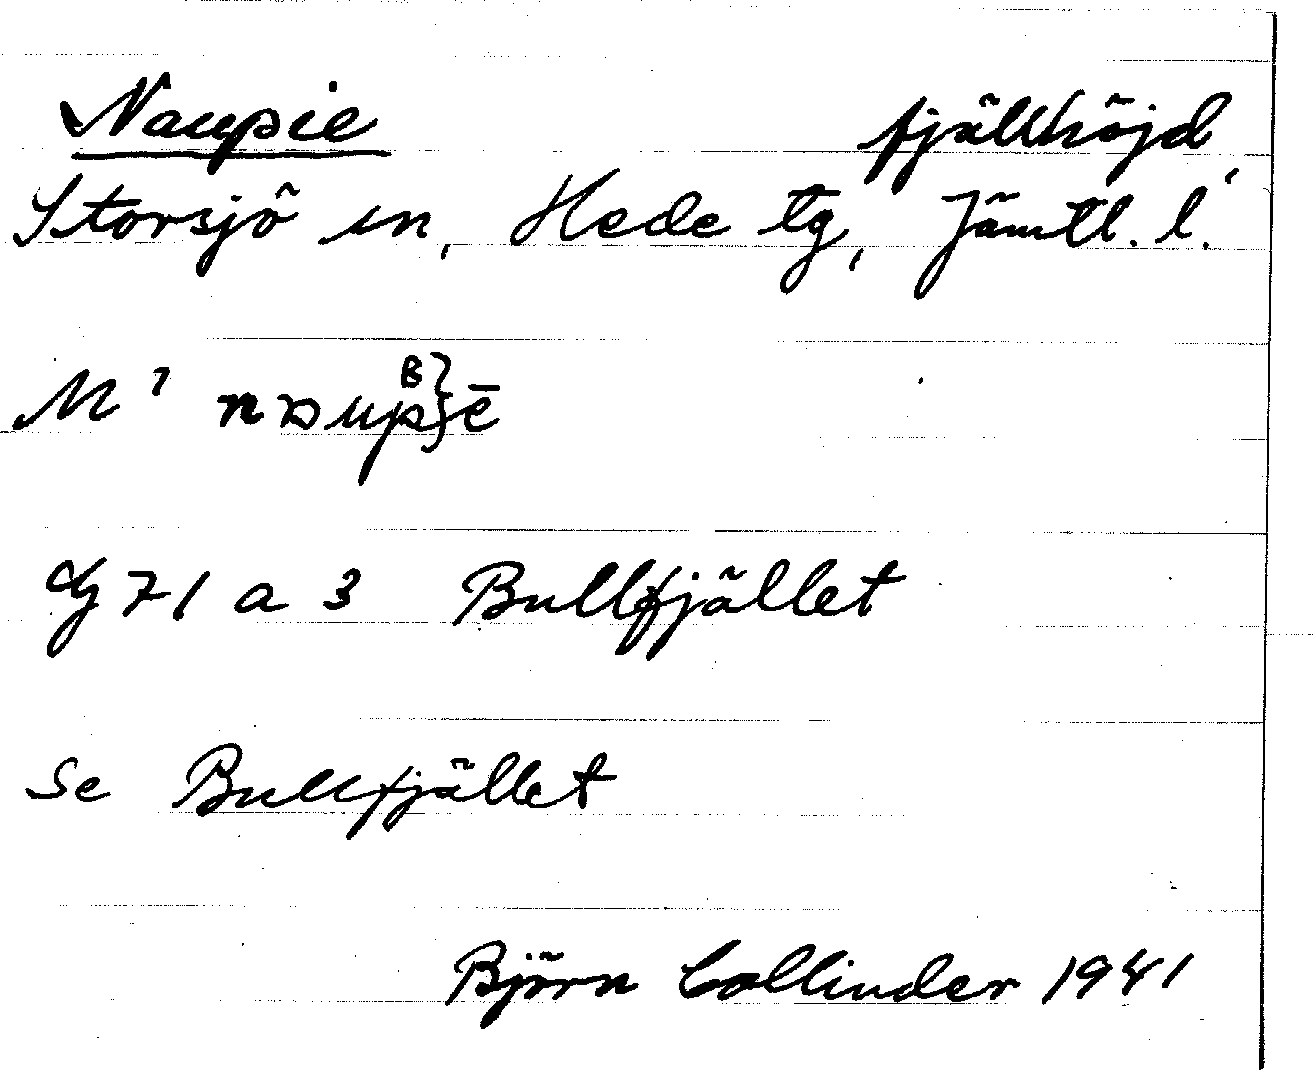 Naupie fjällhöjd,
Storsjö sn, Hede tg, Jämtl. l.
Bullfjället
Se Bullfjället
Björn Collinder 1941